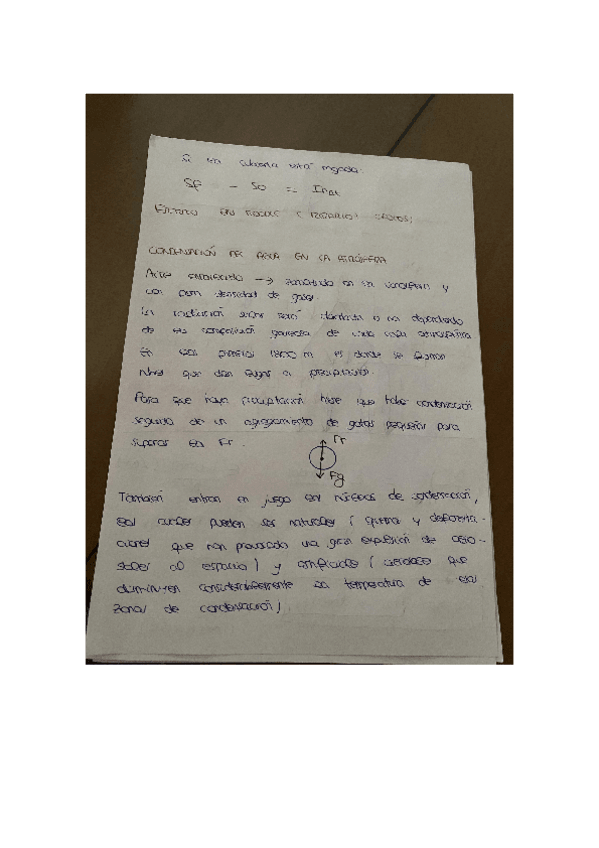 Si la cubierta está mojada:
Sf - So = Inat
CONDENSACIÓN DEL AGUA EN LA ATMÓSFERA
Aire enrarecido → en la atmósfera y
con poca densidad de gases.
La radiación solar será o no dependiendo
de la composición gaseosa de cada capa atmosférica
En los 18000 m es donde se forman
nubes que dan lugar a precipitación.
Para que haya precipitación tiene que haber condensación
seguida de un agregamiento de gotas pequeñas para
superar en Fr.
Fr
Fg
También entran en juego los núcleos de condensación,
los cuales pueden ser naturales ( quema y deforesta-
ciones que han provocado una gran expulsión de aero-
soles al espacio ) y artificiales ( aerosoles que
disminuyen considerablemente la temperatura de las
zonas de condensación )